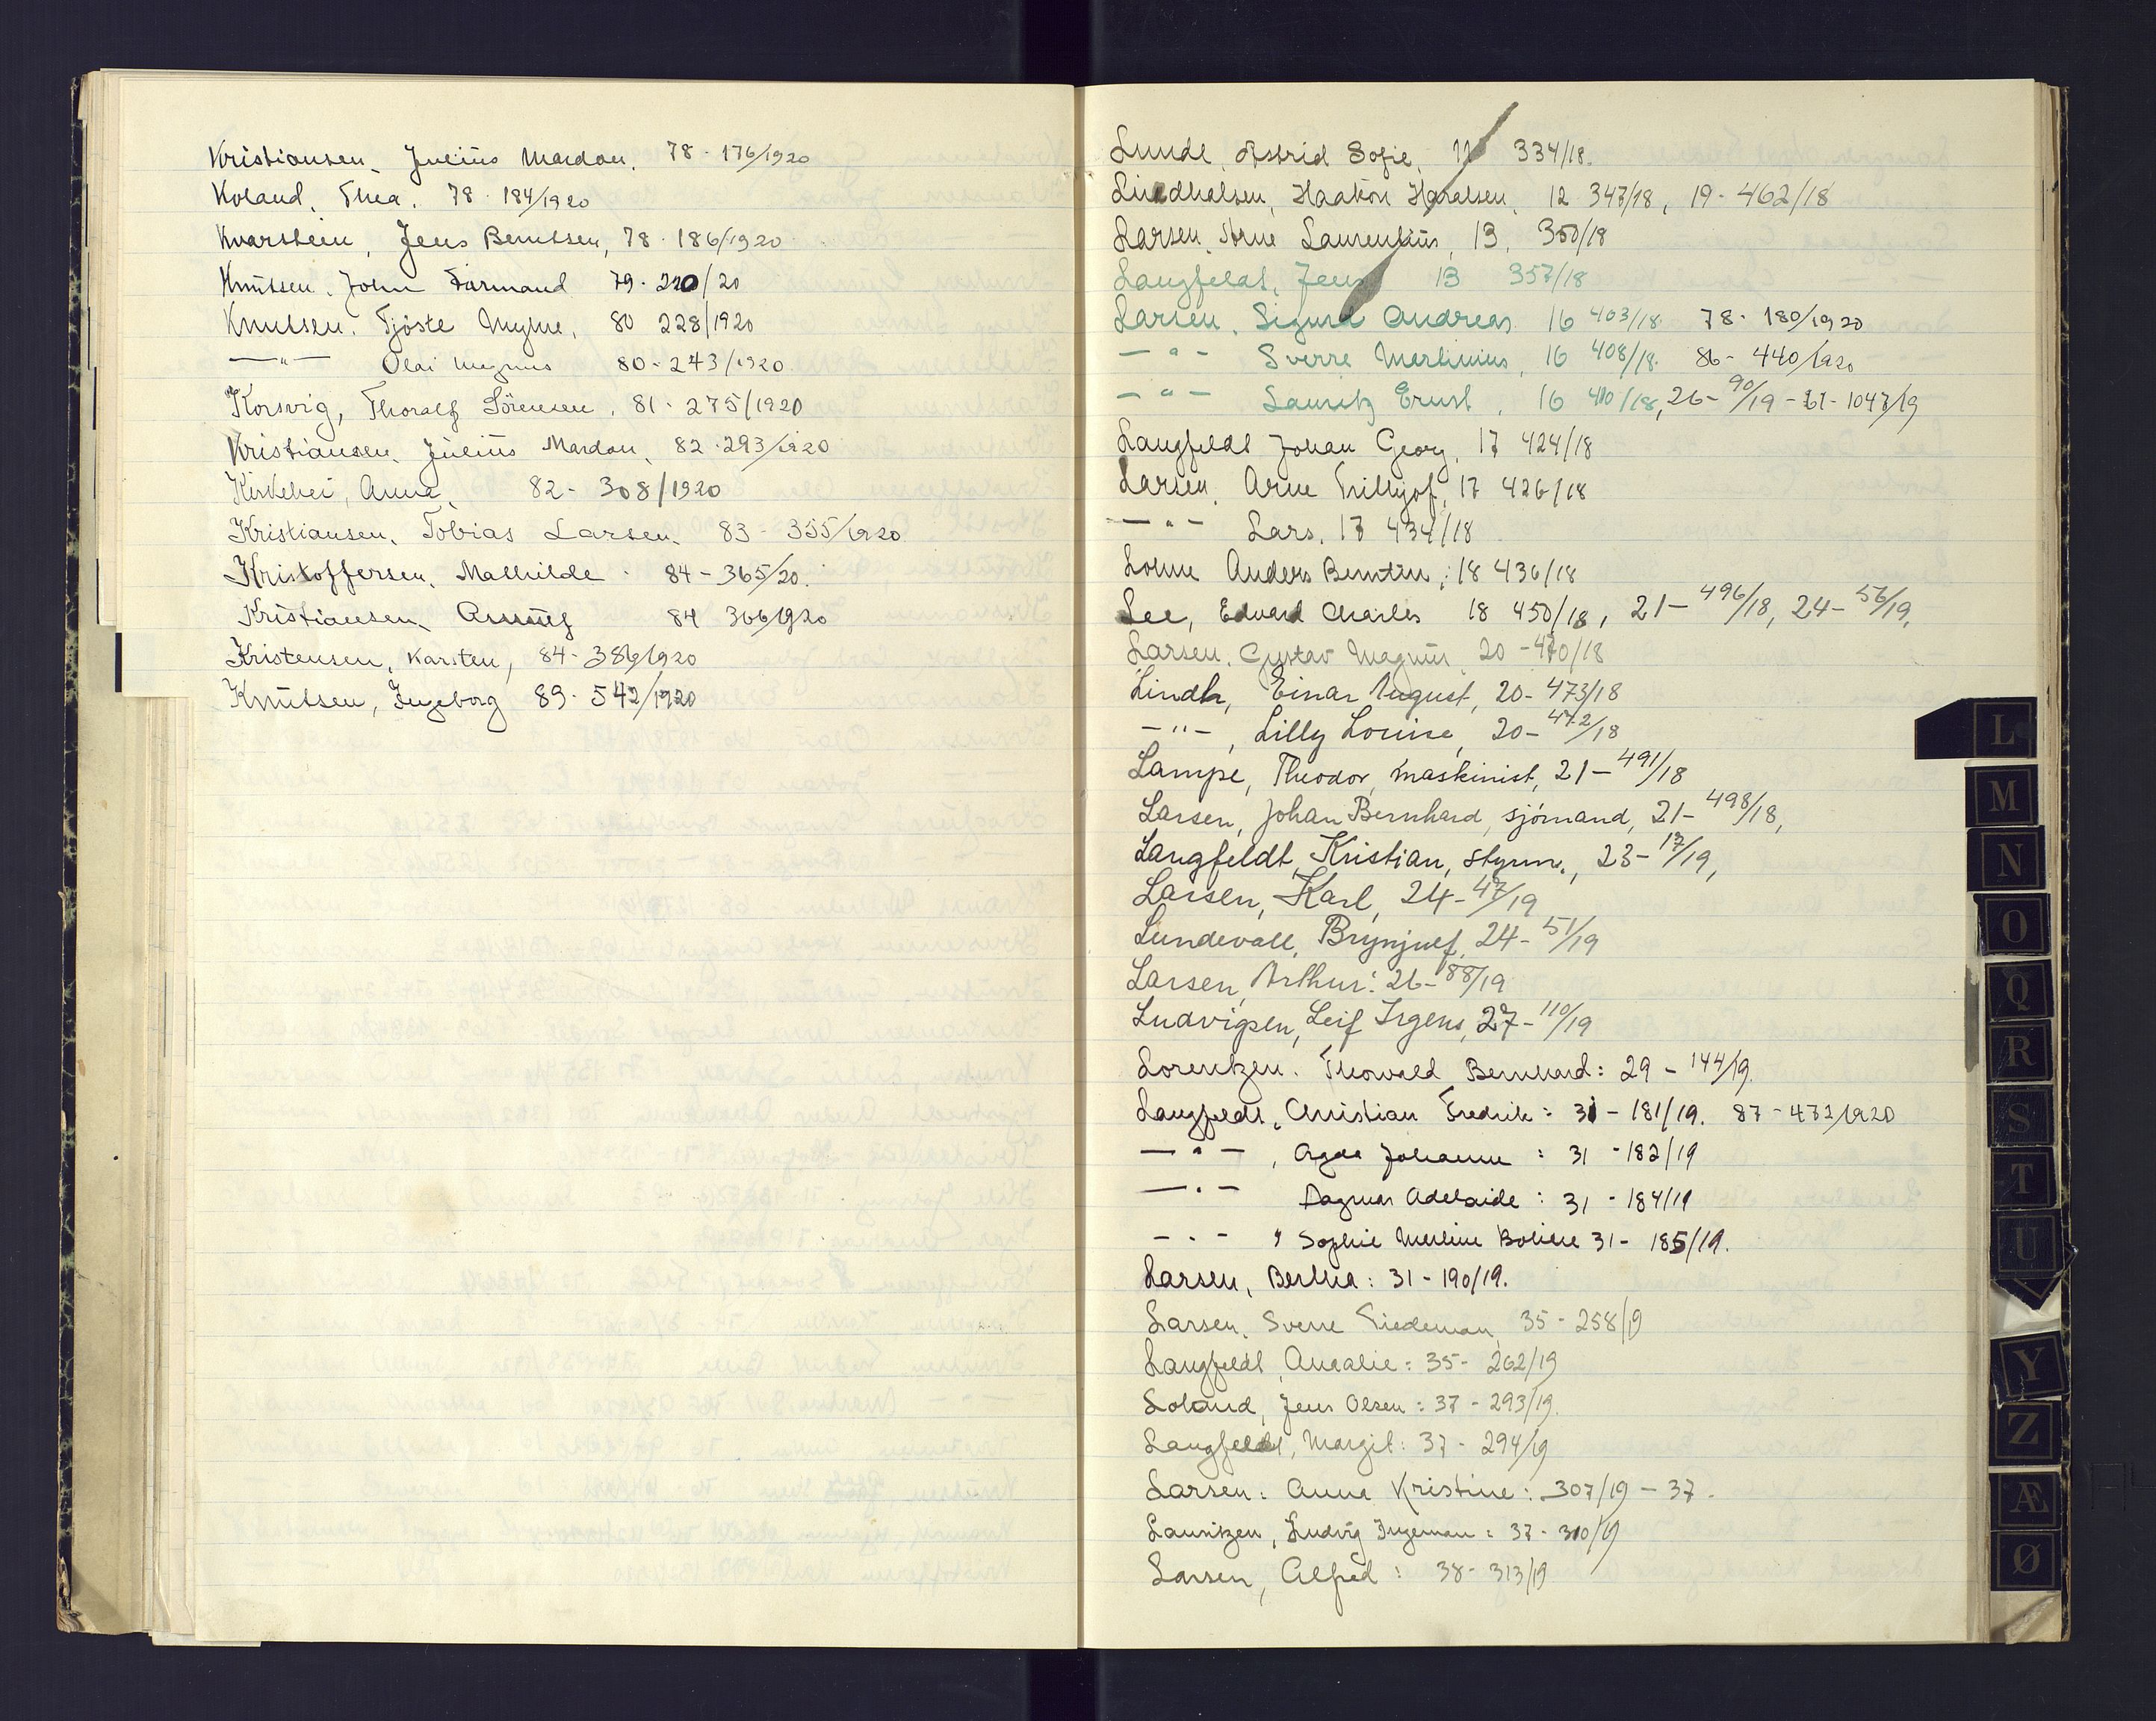 Kristiansen, Julius Mardon. 78 - 176/1920
Koland, Thea. 78 - 184/1920
Kvarstein, Jens Berntsen, 78 - 186/1920
Knutsen. John Farmand 79 - 220/20
Knutsen. Tjöste Myhre, 80 228/1920
—"— Olai Magnus 80 - 243/1920
Korsvig, Thoralf Sörensen. 81 - 275/1920
Kristiansen, Julius Mardon, 82 - 293/1920
Kirkehei, Anna, 82 - 308/1920
Kristiansen, Tobias Larsen. 83 - 355/1920
Kristoffersen, Mathilde . 84 - 365/20.
Kristiansen, 84 366/1920
Kristensen, Karsten, 84 - 386/1920
Knutsen, Ingeborg 89 - 542/1920
Lunde, Astrid Sofie, 334/18.
Haakon Haralsen, 12 347/18, 19 - 462/18
Larsen, Arne Laurentius, 13, 350/18
Langfeldt, Jens 13 357/18
Larsen. Sigurd Andreas. 16 403/18. 78 - 180/1920
— " — Sverre Martinius, 16 408/18. 86 - 440/1920
— " — Lauritz Ernst, 16 410/18, 26 - 90/19 - 61 - 1047/19
Langfeldt Johan Georg, 17 424/18
Larsen, Arne Frithjof, 17 426/18
— " — Lars, 17 434/18
Lohne Anders Berntin, 18 436/18
Lee, Edvard Charles 18 450/18, 21 - 496/18, 24 - 56/19,
Larsen, Gustav Magnus 20 - 470/18
Lindh, Einar August, 20 - 473/18
— " —, Lilly Louise, 20 - 472/18
Lampe, Theodor, maskinist, 21 - 491/18
Larsen, Johan Bernhard, sjömand, 21 - 498/18,
Langfeldt, Kristian, styrm., 23 - 17/19,
Larsen, Karl, 24 - 47/19
Lundevall, Brynjulf, 24 - 51/19
Larsen, Arthur: 26 - 88/19
Ludvigsen, Leif Irgens, 27 - 110/19
Lorentzen. Thorvald Bernhard: 29 - 144/19.
Langfeldt, Christian Fredrik: 31 - 181/19. 87 - 471/1920
— " —, Agda Johanne : 31 - 182/19
— " — Dagmar Adelaide : 31 - 184/19
— " — " Sophie 31 - 185/19.
Larsen, Berthea: 31 - 190/19.
Larsen. Sverre Tiedeman, 35 - 258/19
Langfeldt, Amalie: 35 - 262/19
Loland, Jens Olsen: 37 - 293/19.
Langfeldt, Margit: 37 - 294/19
Larsen: Anna Kristine: 307/19 - 37.
Lauritzen, Ludvig Ingeman: 37 - 310/19
Larsen, Alfred: 38 - 313/19
L
M
N
O
Q
R
S
T
U
Y
Z
Æ
Ø